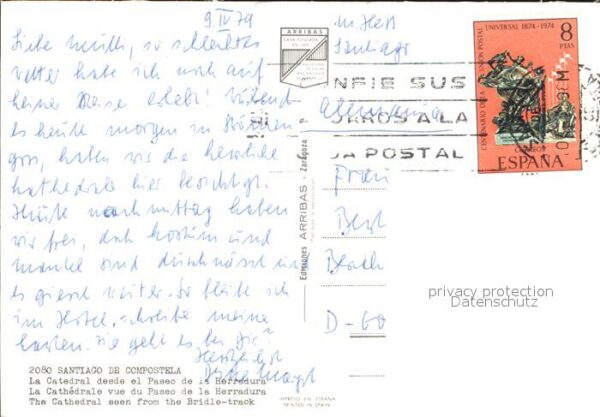 9 IV 79
Liebe Mutti, so schlechtes
Wetter habe ich noch auf
keiner Reise erlebt! Während
es heute morgen in Strömen
goss, haben wir die herrliche
Kathedrale hier besichtigt.
Heute nachmittag haben
wir frei, doch Kostüm und
Mantel sind durchnässt und
es giesst weiter. So bleibe ich
im Hotel, schreibe meine
Karten. Wie geht es bei Dir?
Herzlichst
2080 SANTIAGO DE COMPOSTELA
La Catedral desde el Paseo de la Herradura
La Cathédrale vue du Paseo de la Herradura
The Cathedral seen from the Bridle-track
ARRIBAS
Ediciones ARRIBAS - Zaragoza
IMPRESO EN ESPAÑA
PRINTED IN SPAIN
Santiago
Alemania
Frau
D-60
NFIE SUS
RROS A LA
JA POSTAL
UNIVERSAL 1874-1974
8
PTAS
CENTENARIO DE LA UNION POSTAL
CORREOS
ESPAÑA
privacy protection
Datenschutz